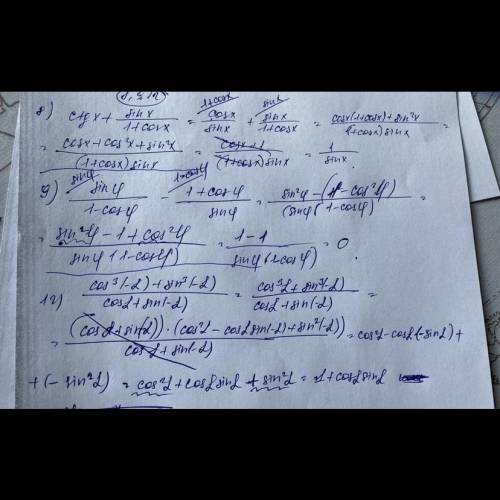 (8, 9, 12)
8) ctg x + sin x / 1+cos x = cos x / sin x (1+cos x + sin x / 1+cos x (sin x = cos x(1+cos x)+sin²x / (1+cos x) sin x =
= cos x + cos²x + sin²x / (1+cos x) sin x = cos x + 1 / (1+cos x) sin x = 1 / sin x.
9) sin φ / 1-cos φ (sin φ - 1+cos φ / sin φ (1-cos φ = sin²φ - (1² - cos²φ) / (sin φ (1-cos φ) =
= sin²φ - 1 + cos²φ / sin φ (1-cos φ) = 1-1 / sin φ (1-cos φ) = 0.
12) cos³(-α) + sin³(-α) / cos α + sin(-α) = cos³α + sin³(-α) / cos α + sin(-α) =
= (cos α + sin(-α)) · (cos²α - cos α sin(-α) + sin²(-α)) / cos α + sin(-α) = cos²α - cos α (-sin α) +
+ (- sin²α) = cos²α + cos α sin α + sin²α = 1 + cos α sin α